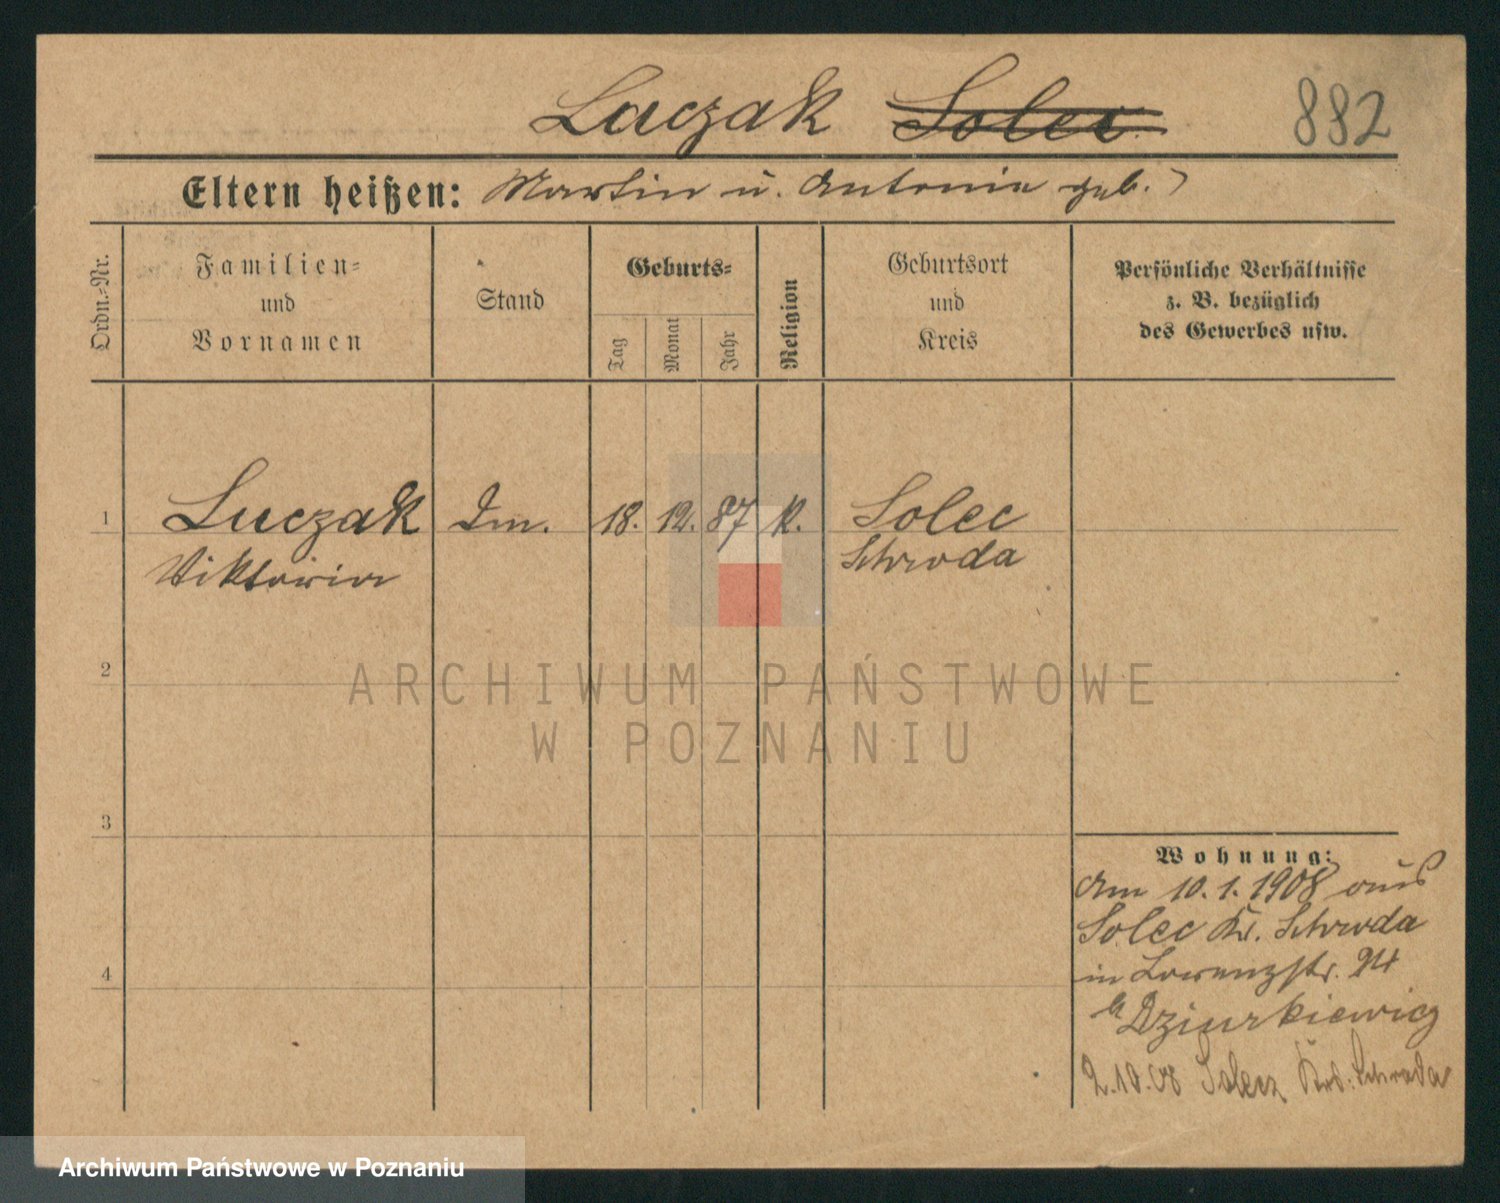 Luczak Solec 882
Eltern heißen: Martin u. Antonie geb. ?
Ordn.-Nr.
Familien=
und
Vornamen
Stand
Geburts=
Tag
Monat
Jahr
Religion
Geburtsort
und
Kreis
Persönliche Verhältnisse
z. B. bezüglich
des Gewerbes usw.
1 Luczak 18. 12. 87 k. Solec
Viktoria Schroda
2
3
4
Wohnung:
Am 10.1.1908 aus
Solec Kr. Schroda
in Lorenzstr.
b Dziurkiewicz
2.10.08 Solec Krs. Schroda
ARCHIWUM PAŃSTWOWE
W POZNANIU
Archiwum Państwowe w Poznaniu